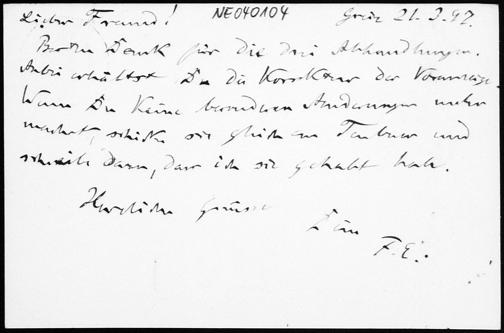 Lieber Freund! NE040104 Graz 21.3.97.
Besten Dank für die drei Abhandlungen.
Anbei erhältst Du die Korrektur der Voranzeige.
Wenn Du keine besonderen Änderungen mehr
machst, schicke sie gleich an Teubner und
schreibe dazu, dass ich sie gehabt habe.
Herzliche Grüsse
Dein
F. E.